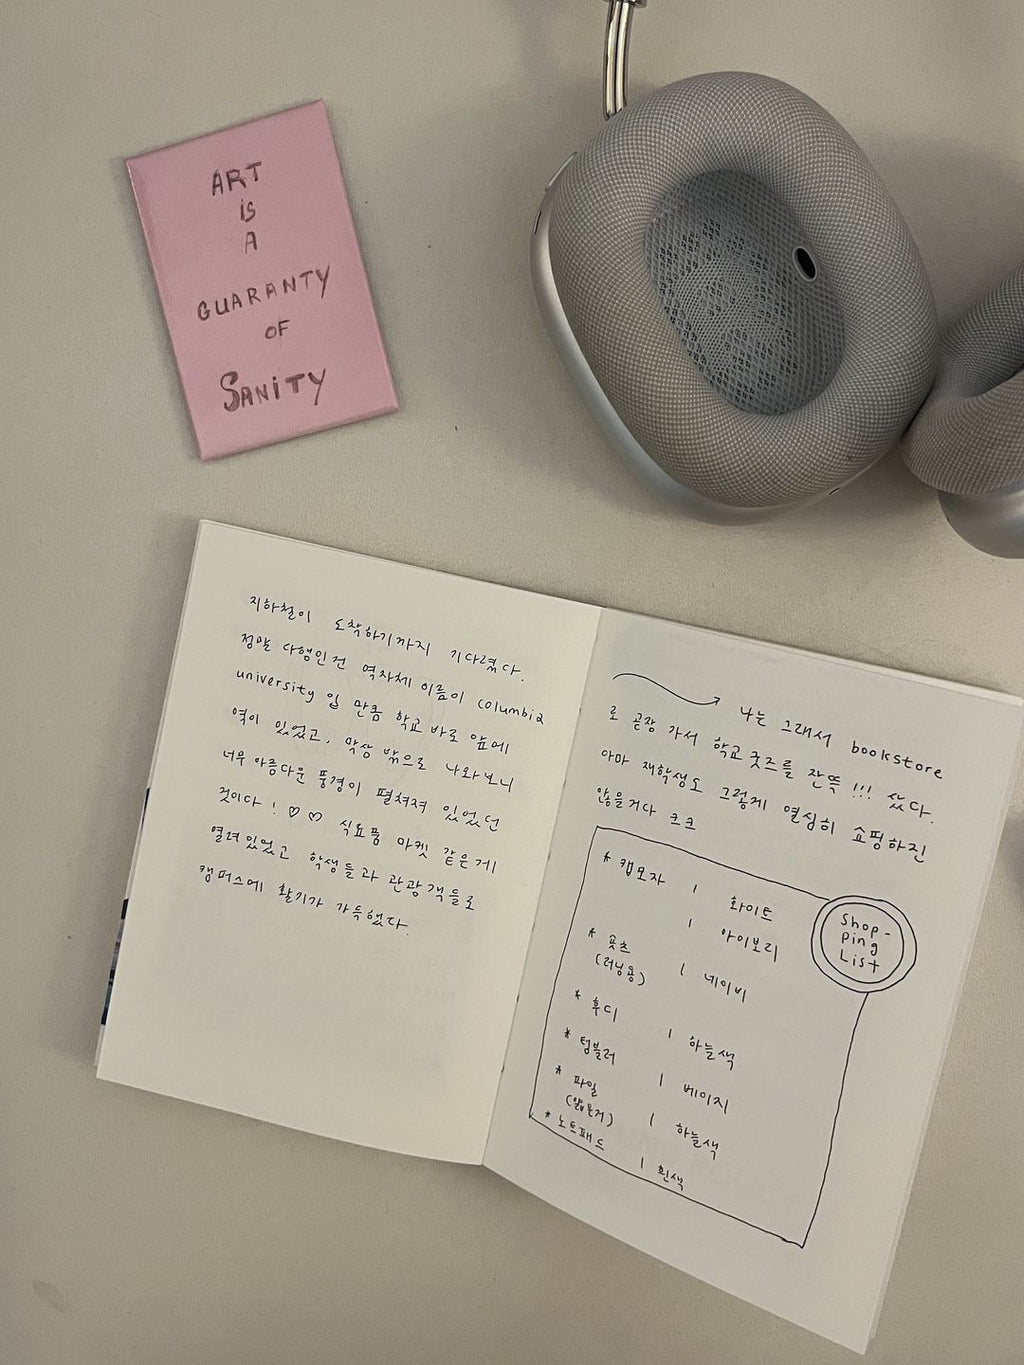 ART
iS
A
GUARANTY
OF
SANiTY
지하철이 도착하기까지 기다렸다.
정말 다행인건 역자체 이름이 columbia
university 일 만큼 학교 바로 앞에
역이 있었고, 막상 밖으로 나와보니
너무 아름다운 풍경이 펼쳐져 있었던
것이다! ♡♡ 식료품 마켓 같은게
열려있었고 학생들과 관광객들로
캠퍼스에 활기가 가득했다.
→ 나는 그래서 bookstore
로 곧장 가서 학교 굿즈를 잔뜩!!! 샀다.
아마 재학생도 그렇게 열심히 쇼핑하진
않을거다 ㅋㅋ
Shop-
ping
List
* 캡모자 1 화이트
1 아이보리
* 숏츠 1 네이비
(러닝용)
* 후디 1 하늘색
* 텀블러 1 베이지
* 파일 1 하늘색
* 노트패드 1 흰색